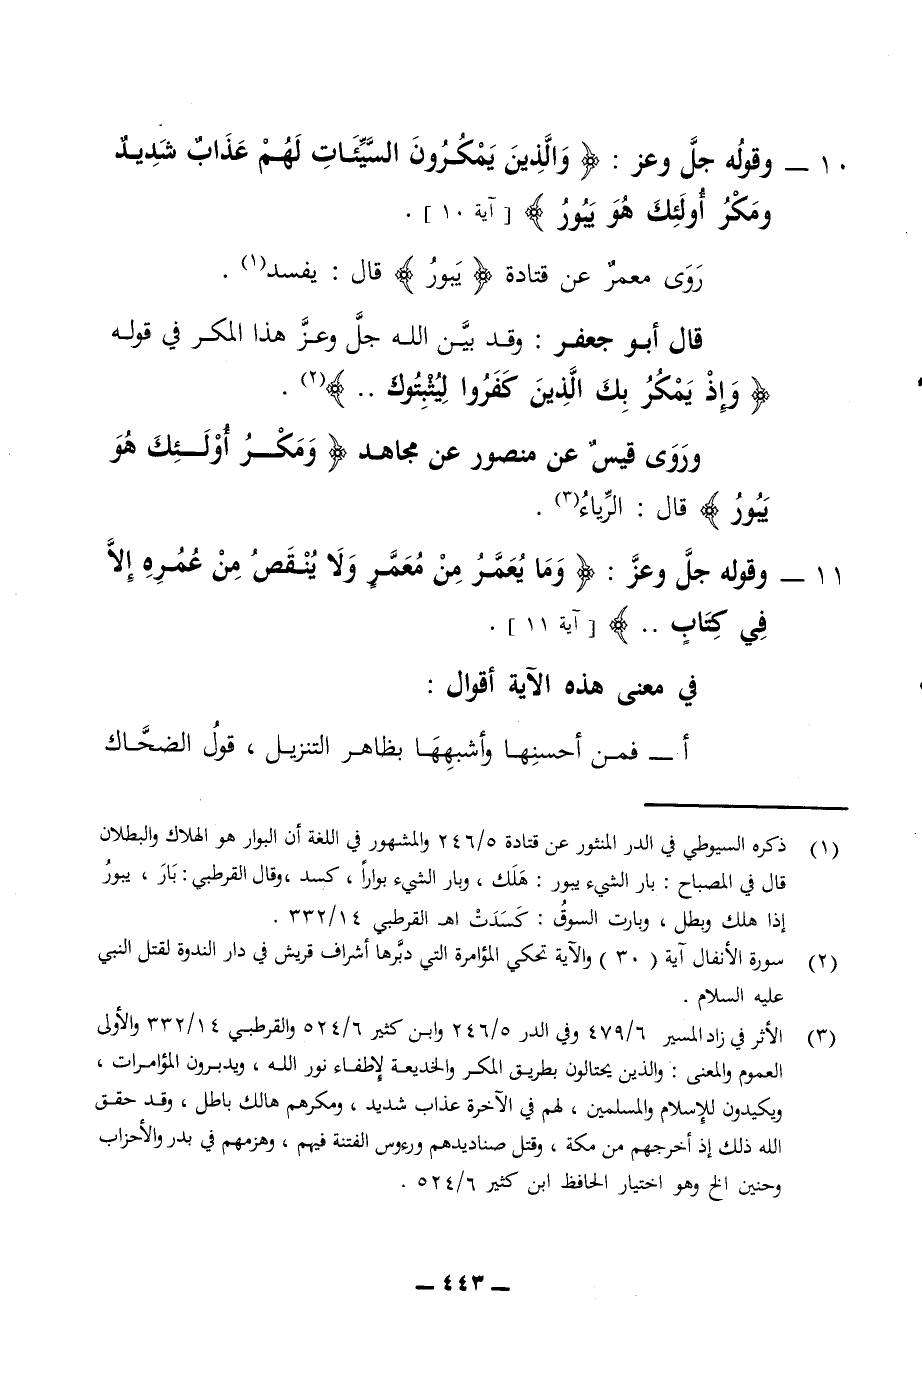 ١٠ ــ وقولُه جلَّ وعز : ﴿ وَالَّذِينَ يَمْكُرُونَ السَّيِّئَاتِ لَهُمْ عَذَابٌ شَدِيدٌ
ومَكْرُ أُولَئِكَ هُوَ يَبُورُ ﴾ [ آية ١٠ ] .
رَوَى معمرٌ عن قتادة ﴿ يَبورُ ﴾ قال : يفسد(١) .
قال أبو جعفر : وقد بيَّن الله جلَّ وعزَّ هذا المكر في قوله
﴿ وَإِذْ يَمْكُرُ بِكَ الَّذِينَ كَفَرُوا لِيُثْبِتُوكَ .. ﴾(٢) .
ورَوَى قيسٌ عن منصور عن مجاهد ﴿ وَمَكْرُ أُوْلَئِكَ هُوَ
يَبُورُ ﴾ قال : الرِّياءُ(٣) .
١١ ــ وقوله جلَّ وعزَّ : ﴿ وَمَا يُعَمَّرُ مِنْ مُعَمَّرٍ وَلَا يُنْقَصُ مِنْ عُمُرِهِ إِلاَّ
فِي كِتَابٍ .. ﴾ [ آية ١١ ] .
في معنى هذه الآية أقوال :
أ ــ فمن أحسنِها وأشبهِهَا بظاهر التنزيل ، قولُ الضحَّاك
(١) ذكره السيوطي في الدر المنثور عن قتادة ٢٤٦/٥ والمشهور في اللغة أن البوار هو الهلاك والبطلان
قال في المصباح : بار الشيء يبور : هَلَك ، وبار الشيء بواراً ، كسد ،وقال القرطبي : بَارَ ، يبورُ
إذا هلك وبطل ، وبارت السوقُ : كَسَدَتْ اهـ القرطبي ٣٣٢/١٤ .
(٢) سورة الأنفال آية ( ٣٠ ) والآية تحكي المؤامرة التي دبَّرها أشراف قريش في دار الندوة لقتل النبي
عليه السلام .
(٣) الأثر في زاد المسير ٤٧٩/٦ وفي الدر ٢٤٦/٥ وابن كثير ٥٢٤/٦ والقرطبي ٣٣٢/١٤ والأولى
العموم والمعنى : والذين يحتالون بطريق المكر والخديعة لإطفاء نور الله ، ويدبرون المؤامرات ،
ويكيدون للإسلام والمسلمين ، لهم في الآخرة عذاب شديد ، ومكرهم هالك باطل ، وقد حقق
الله ذلك إذ أخرجهم من مكة ، وقتل صناديدهم ورءوس الفتنة فيهم ، وهزمهم في بدر والأحزاب
وحنين الخ وهو اختيار الحافظ ابن كثير ٥٢٤/٦ .
ــ ٤٤٣ ــ